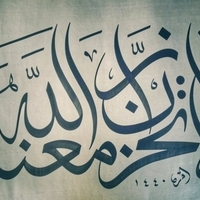 لا تحزن إن الله معنا
١٤٤٠